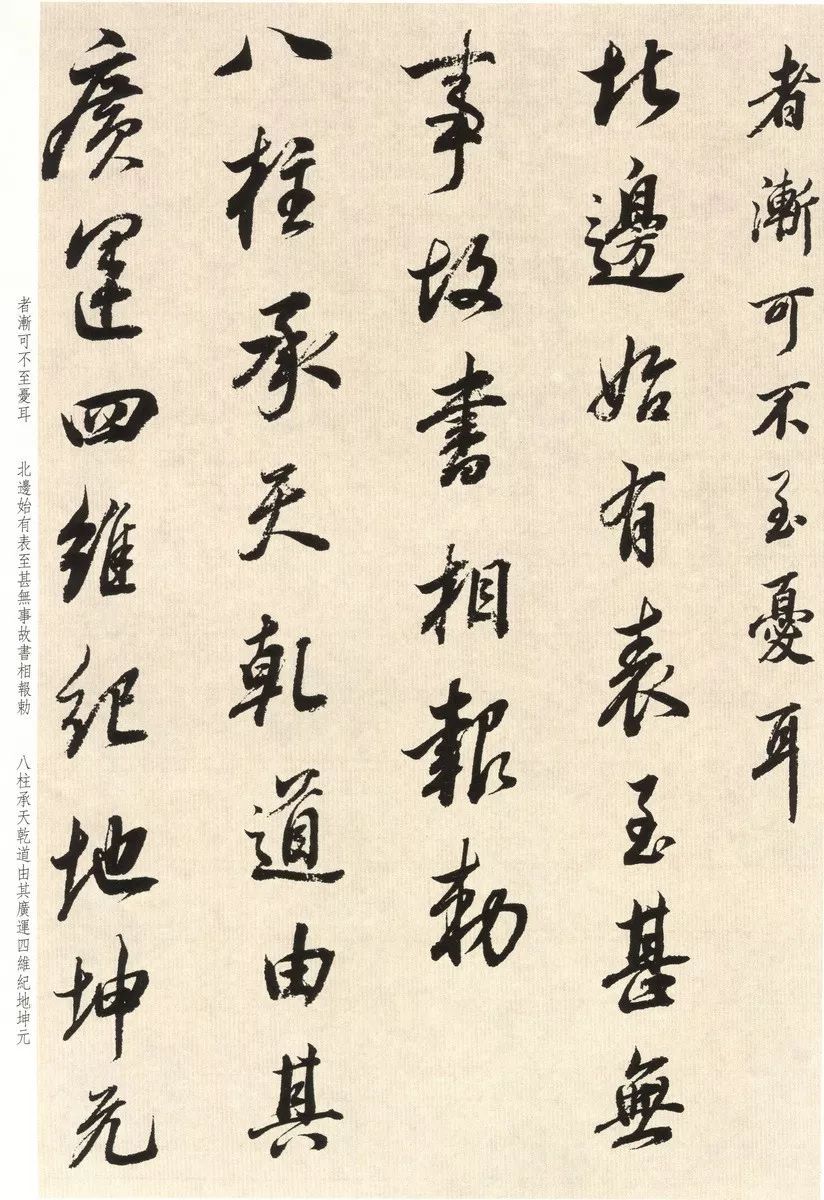 者漸可不至憂耳
北邊始有表至甚無
事故書相報勅
八柱承天乾道由其
廣運四維紀地坤元
者漸可不至憂耳　北邊始有表至甚無事故書相報勅　八柱承天乾道由其廣運四維紀地坤元